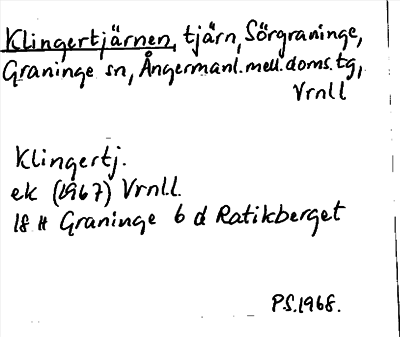 Klingertjärnen, tjärn, Sörgraninge,
Graninge sn, Ångermanl. mell. doms. tg,
Vrnll
Klingertj.
ek (1967) Vrnll.
18 H Graninge 6 d Ratikberget
P.S. 1968.